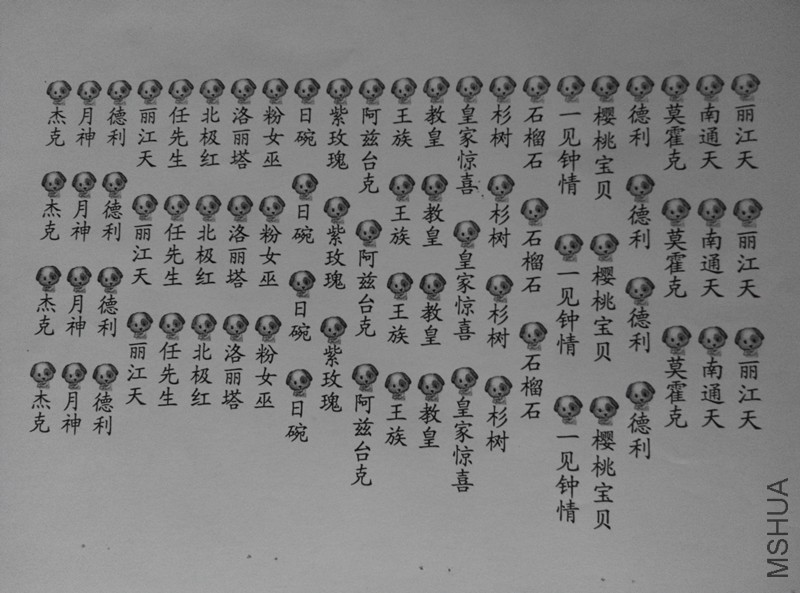 丽江天 丽江天 丽江天
南通天 南通天 南通天
莫霍克 莫霍克 莫霍克
德利 德利 德利 德利
樱桃宝贝 樱桃宝贝 樱桃宝贝
一见钟情 一见钟情 一见钟情
石榴石 石榴石 石榴石
杉树 杉树 杉树 杉树
皇家惊喜 皇家惊喜 皇家惊喜
教皇 教皇 教皇 教皇
王族 王族 王族 王族
阿兹台克 阿兹台克 阿兹台克
紫玫瑰 紫玫瑰 紫玫瑰
日碗 日碗 日碗 日碗
粉女巫 粉女巫 粉女巫
洛丽塔 洛丽塔 洛丽塔
北极红 北极红 北极红
任先生 任先生 任先生
丽江天 丽江天 丽江天
德利 德利 德利 德利
月神 月神 月神 月神
杰克 杰克 杰克 杰克
MSHUA